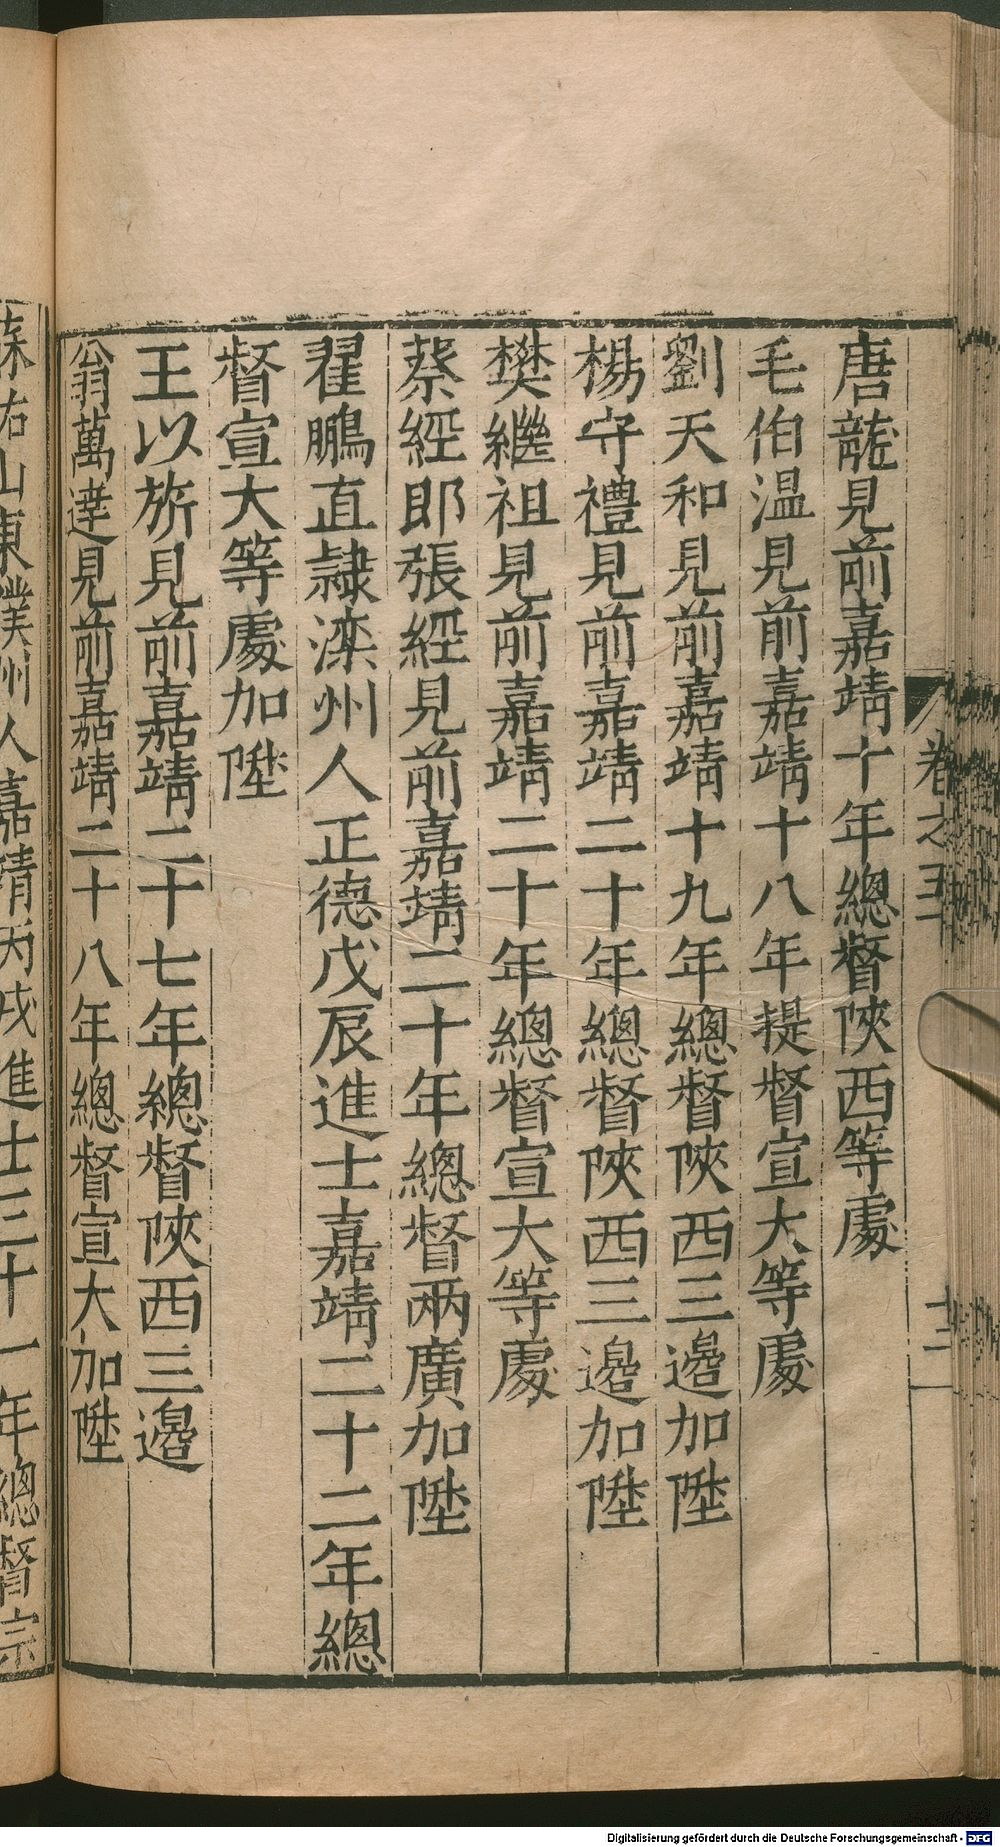 卷之五
十二
唐龍見前嘉靖十年總督陝西等處
毛伯温見前嘉靖十八年提督宣大等處
劉天和見前嘉靖十九年總督陝西三邊加陞
楊守禮見前嘉靖二十年總督陝西三邊加陞
樊繼祖見前嘉靖二十年總督宣大等處
蔡經即張經見前嘉靖二十年總督兩廣加陞
翟鵬直隸灤州人正德戊辰進士嘉靖二十二年總
督宣大等處加陞
王以旂見前嘉靖二十七年總督陝西三邊
翁萬達見前嘉靖二十八年總督宣大加陞
蘇祐山東濮州人嘉靖丙戌進士三十一年總督宗
Digitalisierung gefördert durch die Deutsche Forschungsgemeinschaft - DFG